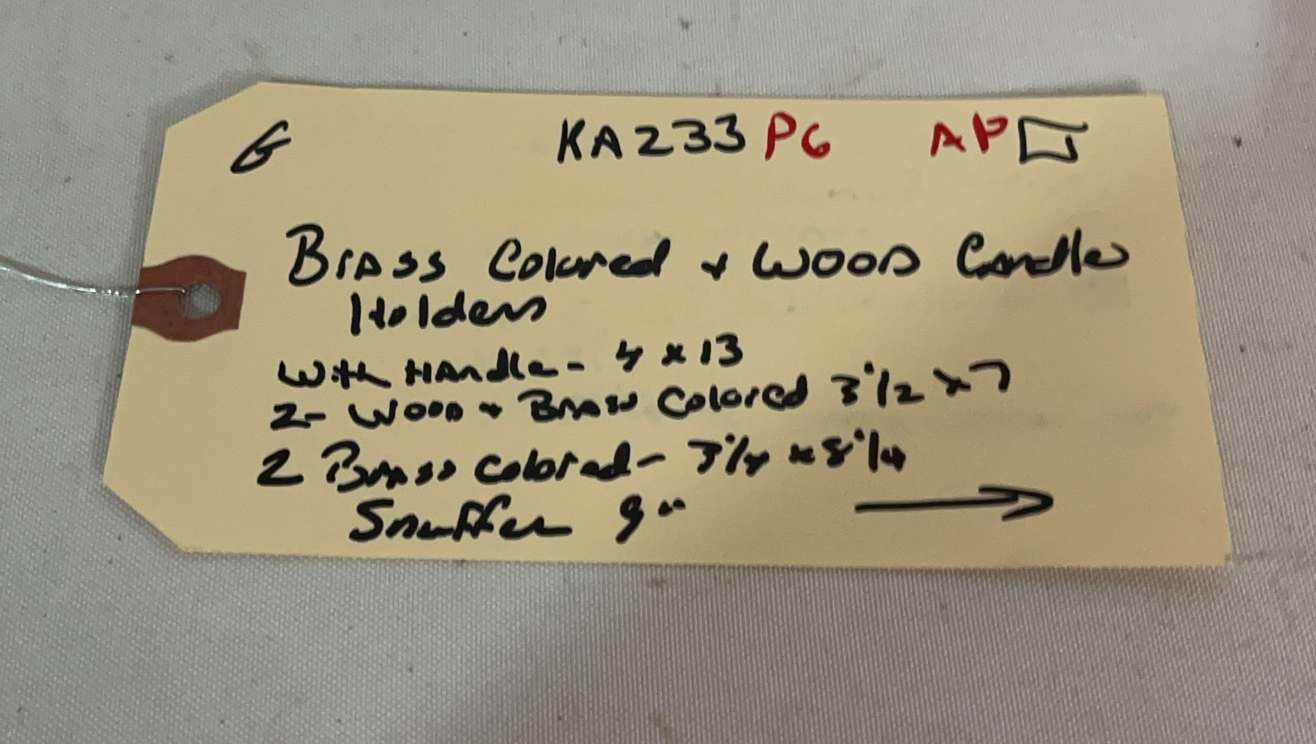 G KA233 PG AP
Brass Colored + Wood Candle
Holders
With Handle - 4 x 13
2 - Wood + Brass Colored 3 1/2 x 7
2 Brass Colored - 3 1/4 x 8 1/4
Snuffer 9"